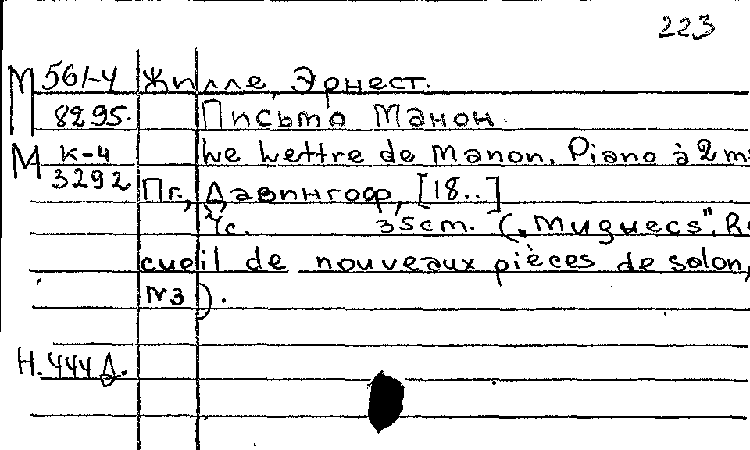 223
М 561-4 Жилле, Эрнест.
8295. Письмо Манон.
М К-4 Le Lettre de Manon. Piano à 2 m
3292 Пг., Давингоф, [18..]
4с. 35cm. („Muguecs". Re
cueil de nouveaux pièces de salon,
N3).
Н. 444 Д.